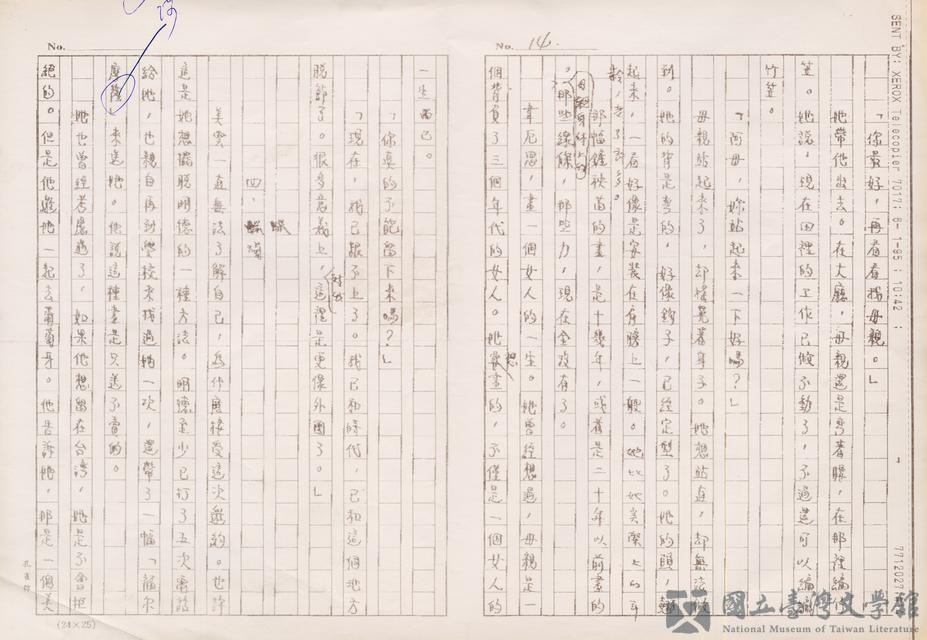 No. 14.
「你最好，再看看我母親。」
她帶他出去。在大廳，母親還是彎著腰，在那裡編竹
笠。她說，現在田裡的工作已做不動了，不過還可以編編
竹笠。
「阿母，妳站起來一下好嗎？」
母親站起來了，却撐著身子。她想站直，却無法做
到。她的背是彎的，好像鉤子，已經定型了。她的頭，翹
起來，一直好像是安裝在肩膀上一般。她比她
齡，老了許多。
那幅鍾秧苗的畫，是十幾年，或者是二十年以前畫的
。那些線條，那些力，現在全沒有了。
韋尼思，畫一個女人的一生。她曾經想過，母親是一
個背負了三個年代的女人。她想畫的，不僅是一個女人的
No.
一生而已。
「你真的不能留下來嗎？」
「現在，我已跟不上了。我已和時代，已和這個地方
脫節了。很多意義上，對我這裡是更像外國了。」
四、
美雲一直無法了解自己，為什麼接受這次邀約。也許
這是她想擺脫明德的一種方法。明德至少已打了五次電話
給她，也親自再到學校來找過她一次，還帶了一幅「福爾
摩薩」來送她。他說這種畫是只送不賣的。
她也曾經考慮過了，如果他想留在台灣，她是不會拒
絕的。但是他邀她一起去葡萄牙。他告訴她，那是一個美
(24×25)
SENT BY: XEROX Telecopier 7017; 6- 1-95 ; 10:42 ;
國立臺灣文學館
National Museum of Taiwan Literature